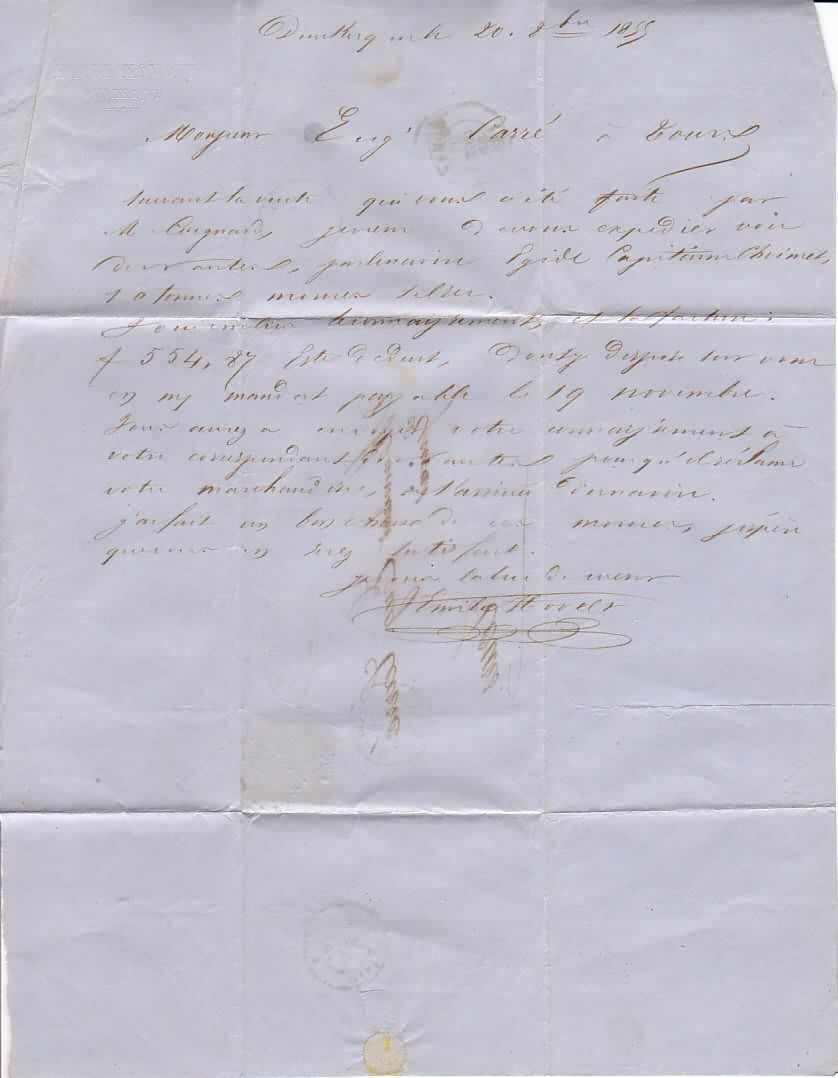 Dunkerque le 20. 8bre 1855
Monsieur Eugº Carré à Tours
Suivant la vente qui vous a été faite par
M Coignard, je viens de vous expedier voie
de Nantes, par le navire Egide Capitaine
10 tonnes morues
Sous ce pli le connaissement et la facture:
f 554,87 Este de deux, dont je dispose sur vous
en my mandat payable le 19 novembre.
Vous aurez a envoyer votre connaissement à
votre correspondant de Nantes pour qu'il réclame
votre marchandise, a l'arrivée du navire.
j'ai fait un bon choix de ces morues, j'espère
que vous en serez satisfait.
je vous salue
Emile